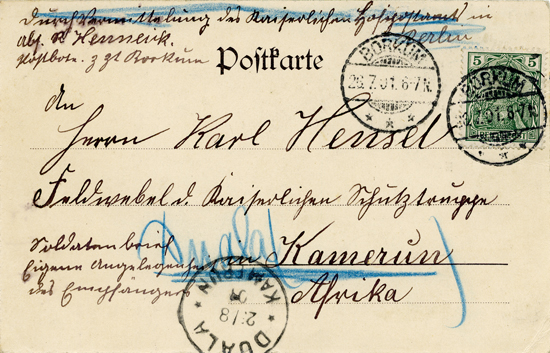 Durch Vermittelung des Kaiserlichen Hofpostamts in
Berlin
Abs. R Henneick.
Postbote. z zt Borkum
Postkarte
BORKUM
26.7.01.6-7N.
5 5
BORKUM
7.01.6-7N.
An
Herrn Karl Hensel
Feldwebel d. Kaiserlichen Schutztruppe
Soldatenbrief
Eigene Angelegenheit
des Empfängers
Duala
in Kamerun
Afrika
DUALA
KAMERUN
2/8
01